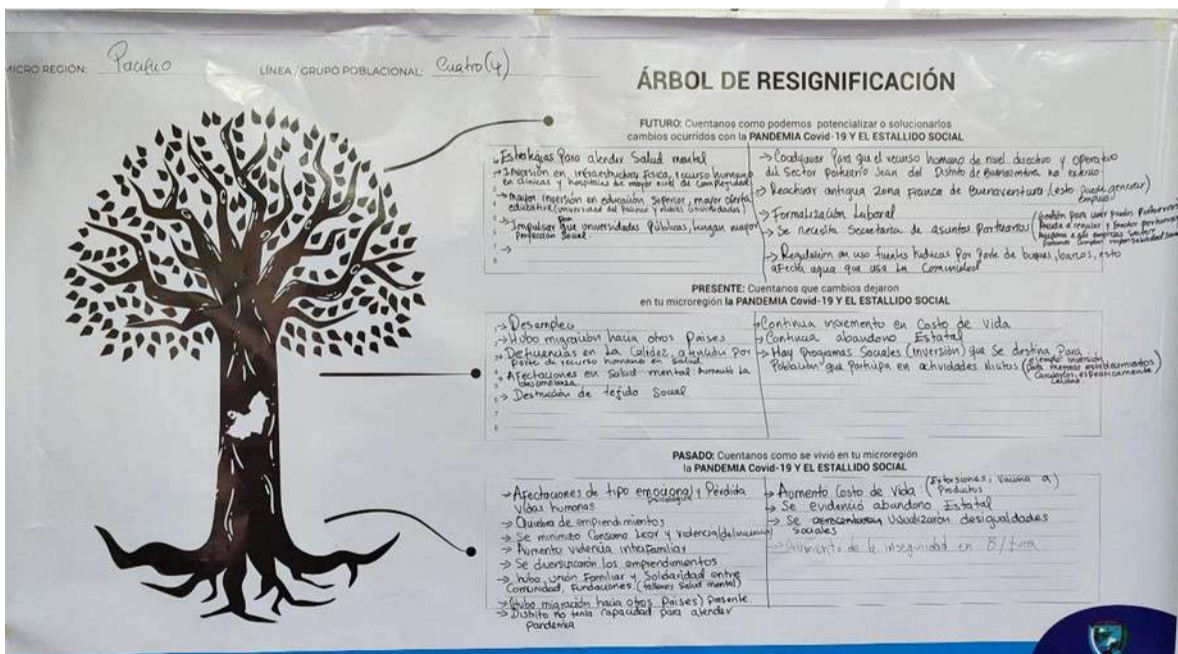 MICRO REGIÓN: Pacifico
LÍNEA / GRUPO POBLACIONAL: Cuatro (4)
ÁRBOL DE RESIGNIFICACIÓN
FUTURO: Cuentanos como podemos potencializar o solucionarlos
cambios ocurridos con la PANDEMIA Covid-19 Y EL ESTALLIDO SOCIAL
Estrategias Para atender Salud mental
→ Inversión en infraestructura física, recurso humano
en clínicas y hospitales de mayor nivel de complejidad
→ mayor inversión en educación Superior, mayor oferta
educativa (universidad del pacifico y nuevas universidades)
Impulsar que universidades Públicas, tengan mayor
Proyección Social.
→
→ Coadyuvar Para que el recurso humano de nivel directivo y operativo
del Sector portuario Sean del Distrito de Buenaventura no externo
→ Reactivar antigua Zona Franca de Buenaventura (esto puede generar)
empleo
→ Formalización Laboral
→ Se necesita Secretaria de asuntos Portuarios
→ Regulación en uso fuentes hídricas Por parte de buques, barcos, esto
afecta agua que usa la Comunidad
PRESENTE: Cuentanos que cambios dejaron
en tu microregión la PANDEMIA Covid-19 Y EL ESTALLIDO SOCIAL
1 → Desempleo
→ Hubo migración hacia otros Países
→ Deficiencias en la Calidez, atención Por
Parte de recurso humano en Salud
→ Afectaciones en Salud mental: Aumentó la
desconfianza
→ Destrucción de tejido Social
→ Continua incremento en Costo de vida
→ Continua abandono Estatal
→ Hay Programas Sociales (inversión) que Se destina Para
Población que Participa en actividades ilícitas
PASADO: Cuentanos como se vivió en tu microregión
la PANDEMIA Covid-19 Y EL ESTALLIDO SOCIAL
→ Afectaciones de tipo emocional y Pérdida
psicologica
vidas humanas
→ Quiebra de emprendimientos
→ Se minimizó Consumo Licor y violencia (delincuencia)
→ Aumento violencia intrafamiliar
→ Se diversificaron los emprendimientos
→ hubo, unión Familiar y Solidaridad entre
Comunidad, Fundaciones. (talleres Salud mental)
→ (Hubo migración hacia otros Países) Presente.
→ Distrito no tenia capacidad para atender
Pandemia
→ Aumento Costo de Vida (Extorsiones, vacuna a)
Productos
→ Se evidenció abandono Estatal
→ Se visualizaron desigualdades
Sociales
→ Aumento de la inseguridad en B/tura